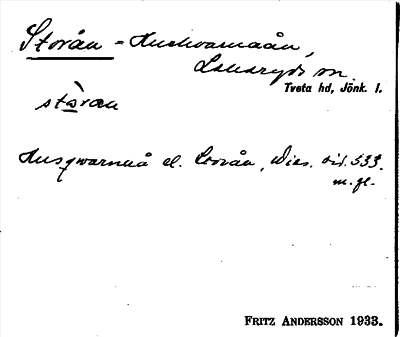 Storån = Huskvarnaån,
Lekeryds sn.
Tveta hd, Jönk. l.
stòran
Husqvarnaå el. Storån, Wies. sid. 533.
m. fl.
FRITZ ANDERSSON 1933.